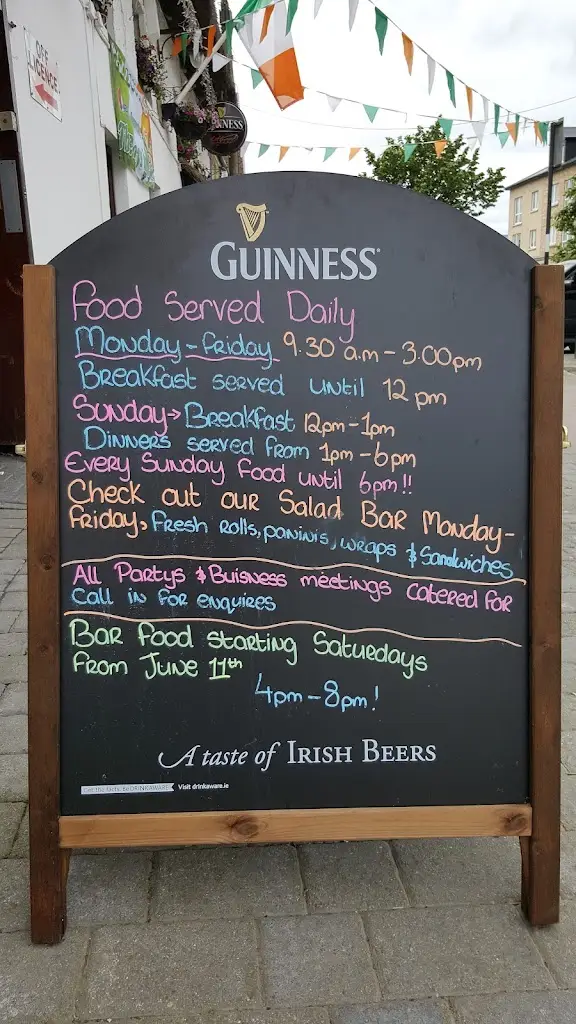 OFF
LICENCE
GUINNESS
GUINNESS
Food Served Daily
Monday - friday 9.30 a.m - 3.00pm
Breakfast served until 12 pm
Sunday → Breakfast 12pm - 1pm
Dinners served from 1pm - 6pm
Every Sunday food until 6pm!!
Check out our Salad Bar Monday -
Friday, Fresh rolls, paninis, wraps & Sandwiches
All Partys & Buisness meetings catered for
Call in for enquires
Bar food starting Saturdays
From June 11th
4pm - 8pm!
A taste of IRISH BEERS
Get the facts. Be DRINKAWARE Visit drinkaware.ie